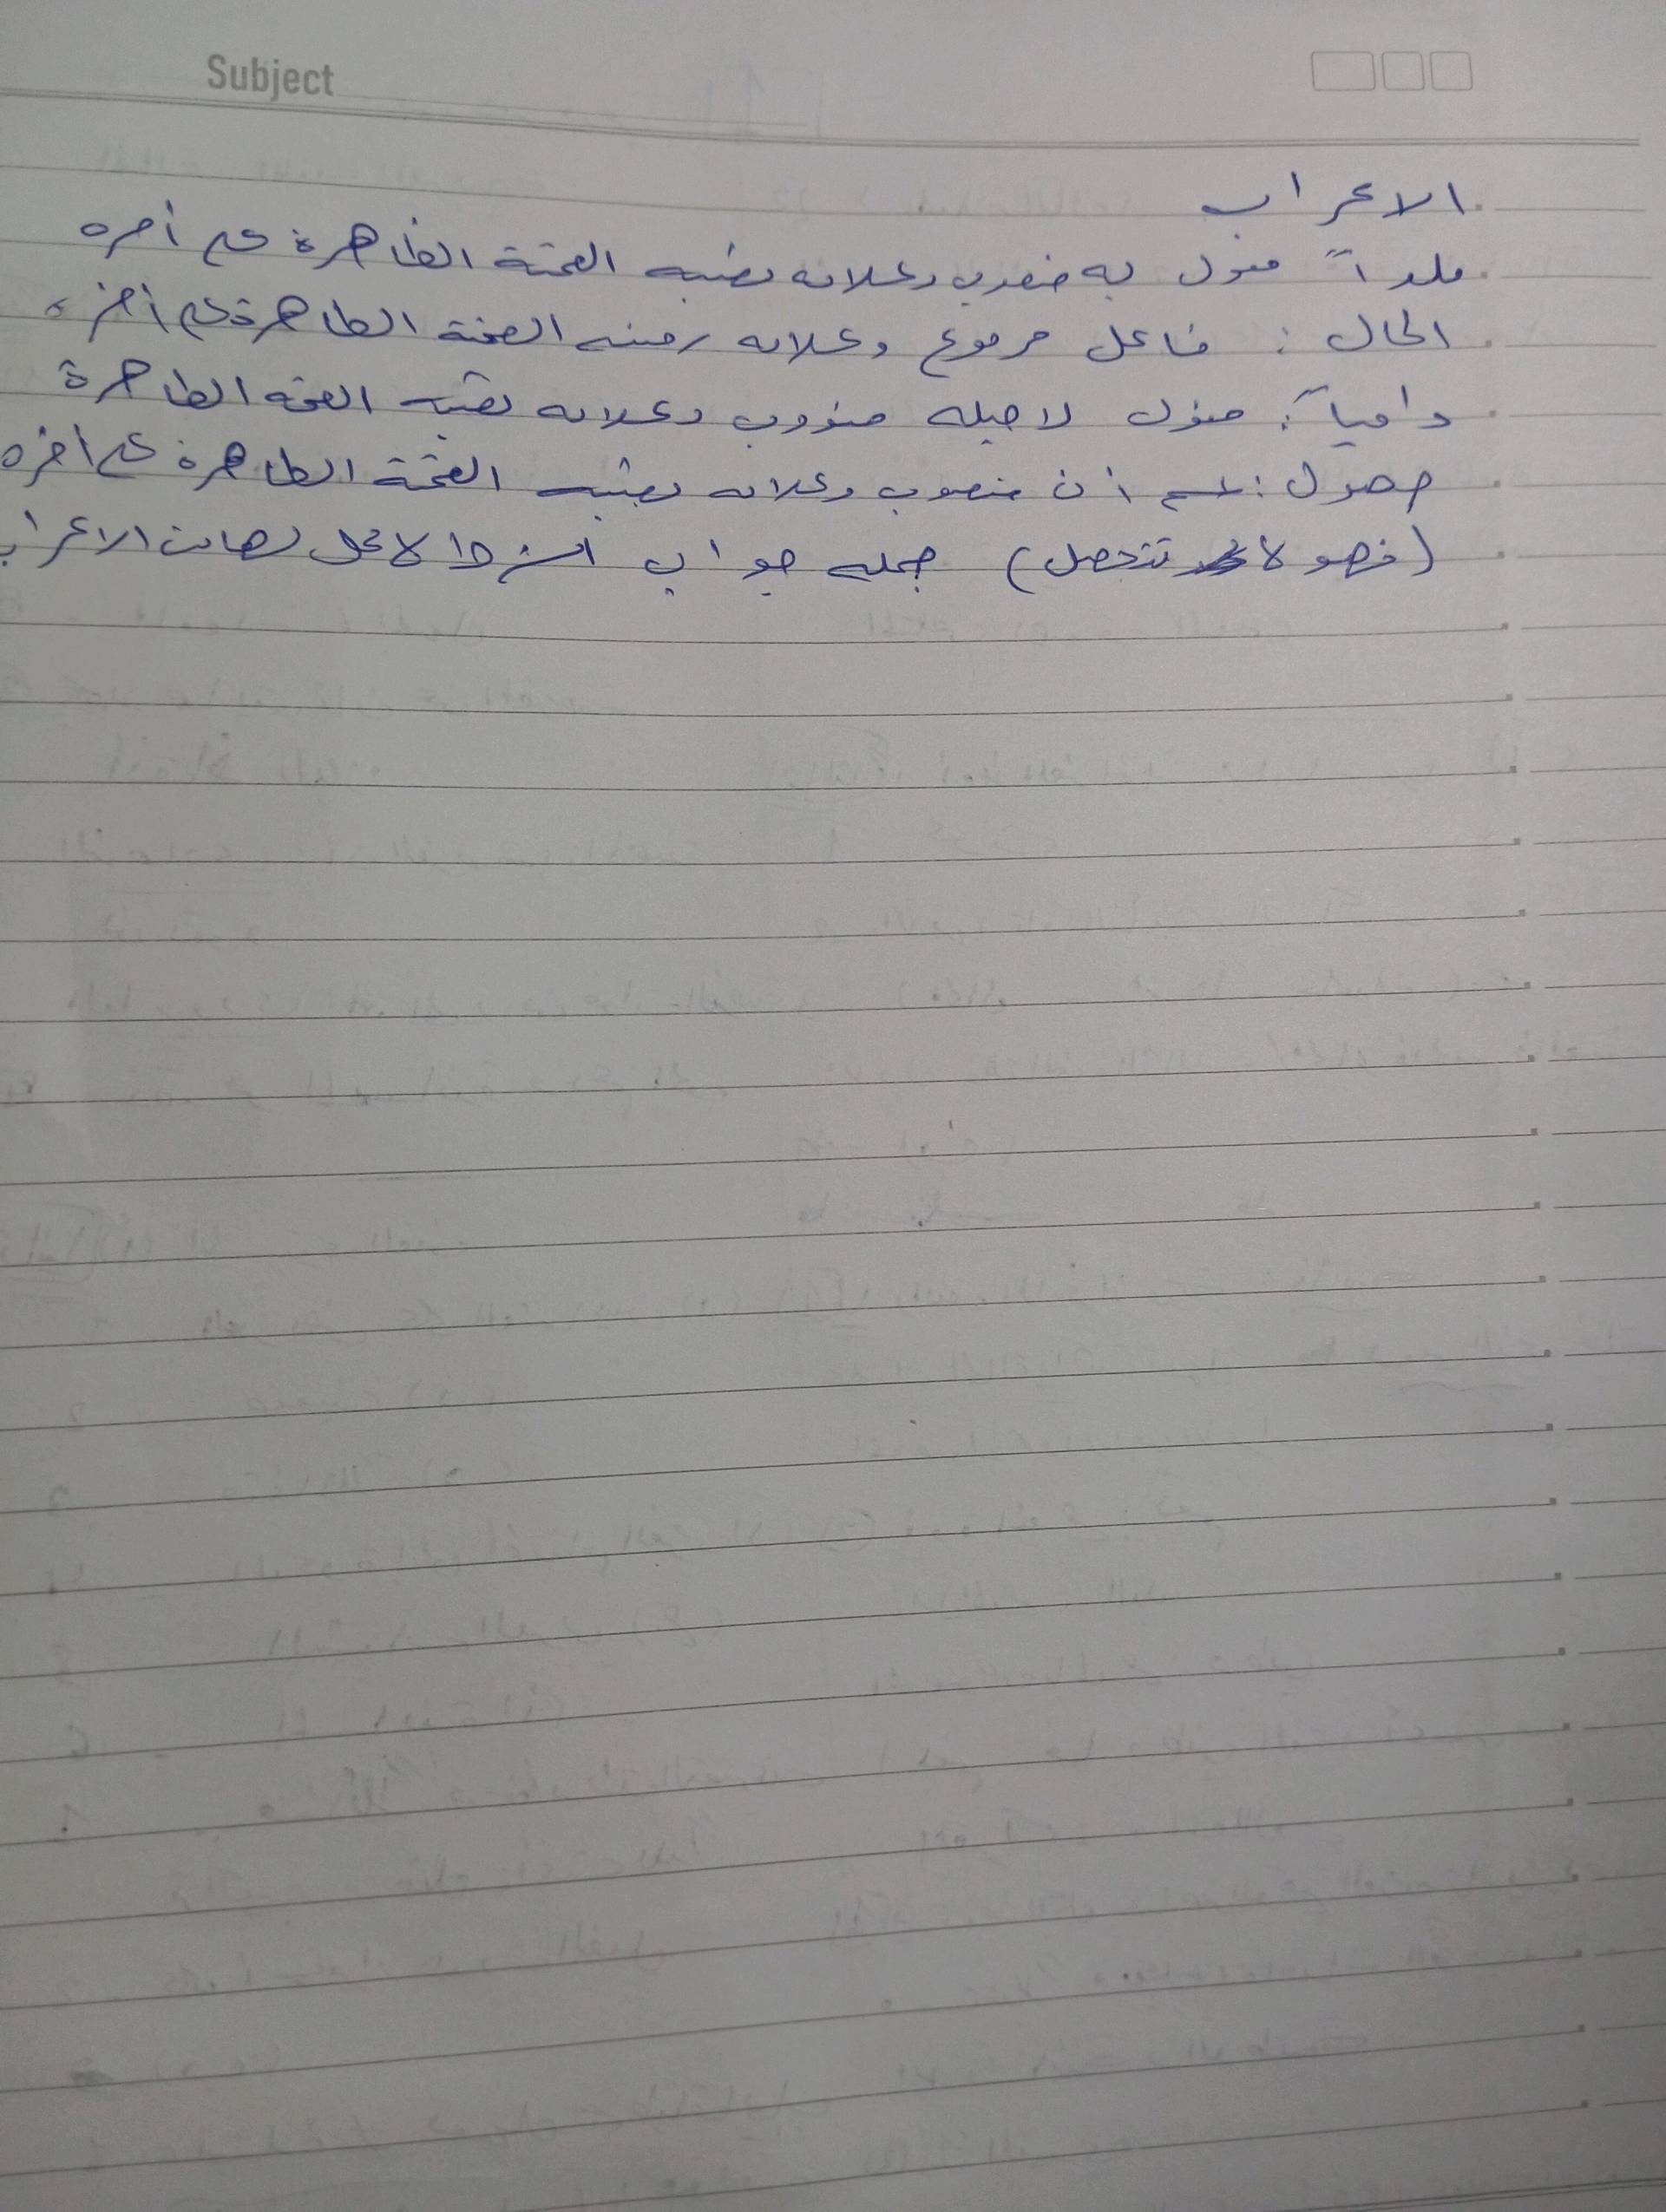 Subject
الاعراب
ملداً مفعول به منصوب وعلامه نصبه الفتحة الظاهرة على أخره
الحال : فاعل مرفوع وعلامه رفعه الضمة الظاهرة على أخره
دامياً : مفعول لاجله منصوب وعلامه نصبه الفتحه الظاهرة
حصول : اسم ان منصوب وعلامه نصبه الفتحة الظاهرة على أخره
(فهو لا تتحصل) جمله جواب الشرط لا محل لها من الاعراب